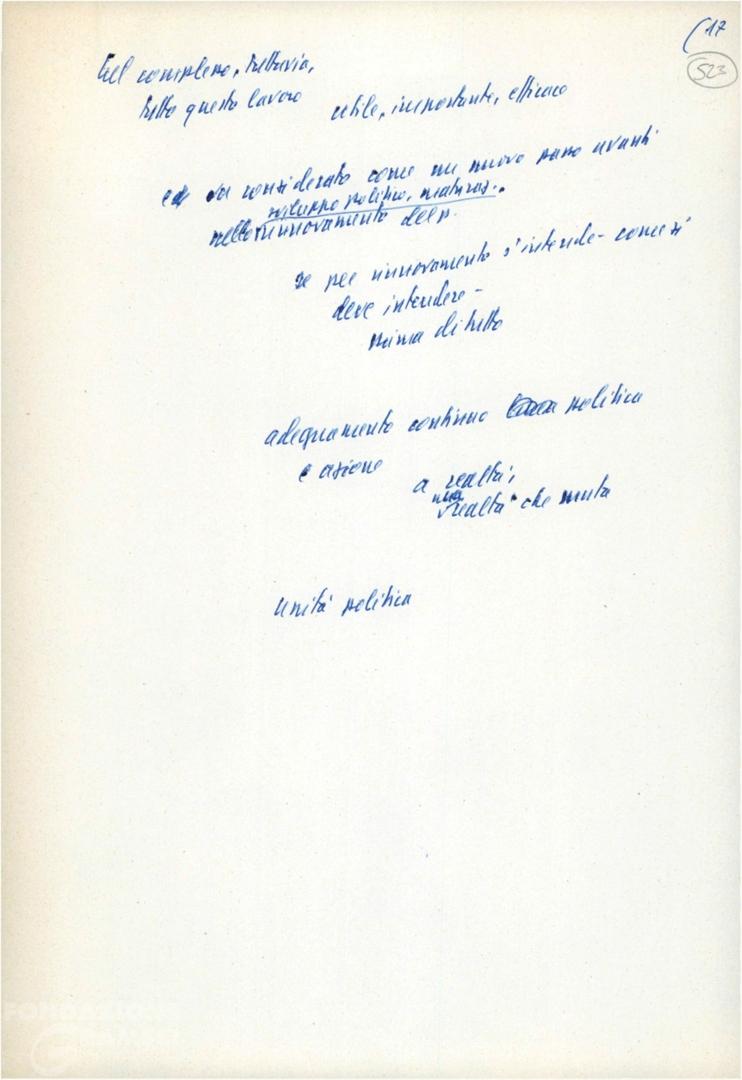 (17
523
Nel complesso, tuttavia,
tutto questo lavoro utile, importante, efficace
ed va considerato come un nuovo passo avanti
sviluppo politico, maturaz.
nello rinnovamento del p.
se per rinnovamento s'intende - come si
deve intendere -
prima di tutto
adeguamento continuo politica
e azione
a realtà,
una
realtà che muta
unità politica
FONDAZIONE
GRAMSCI